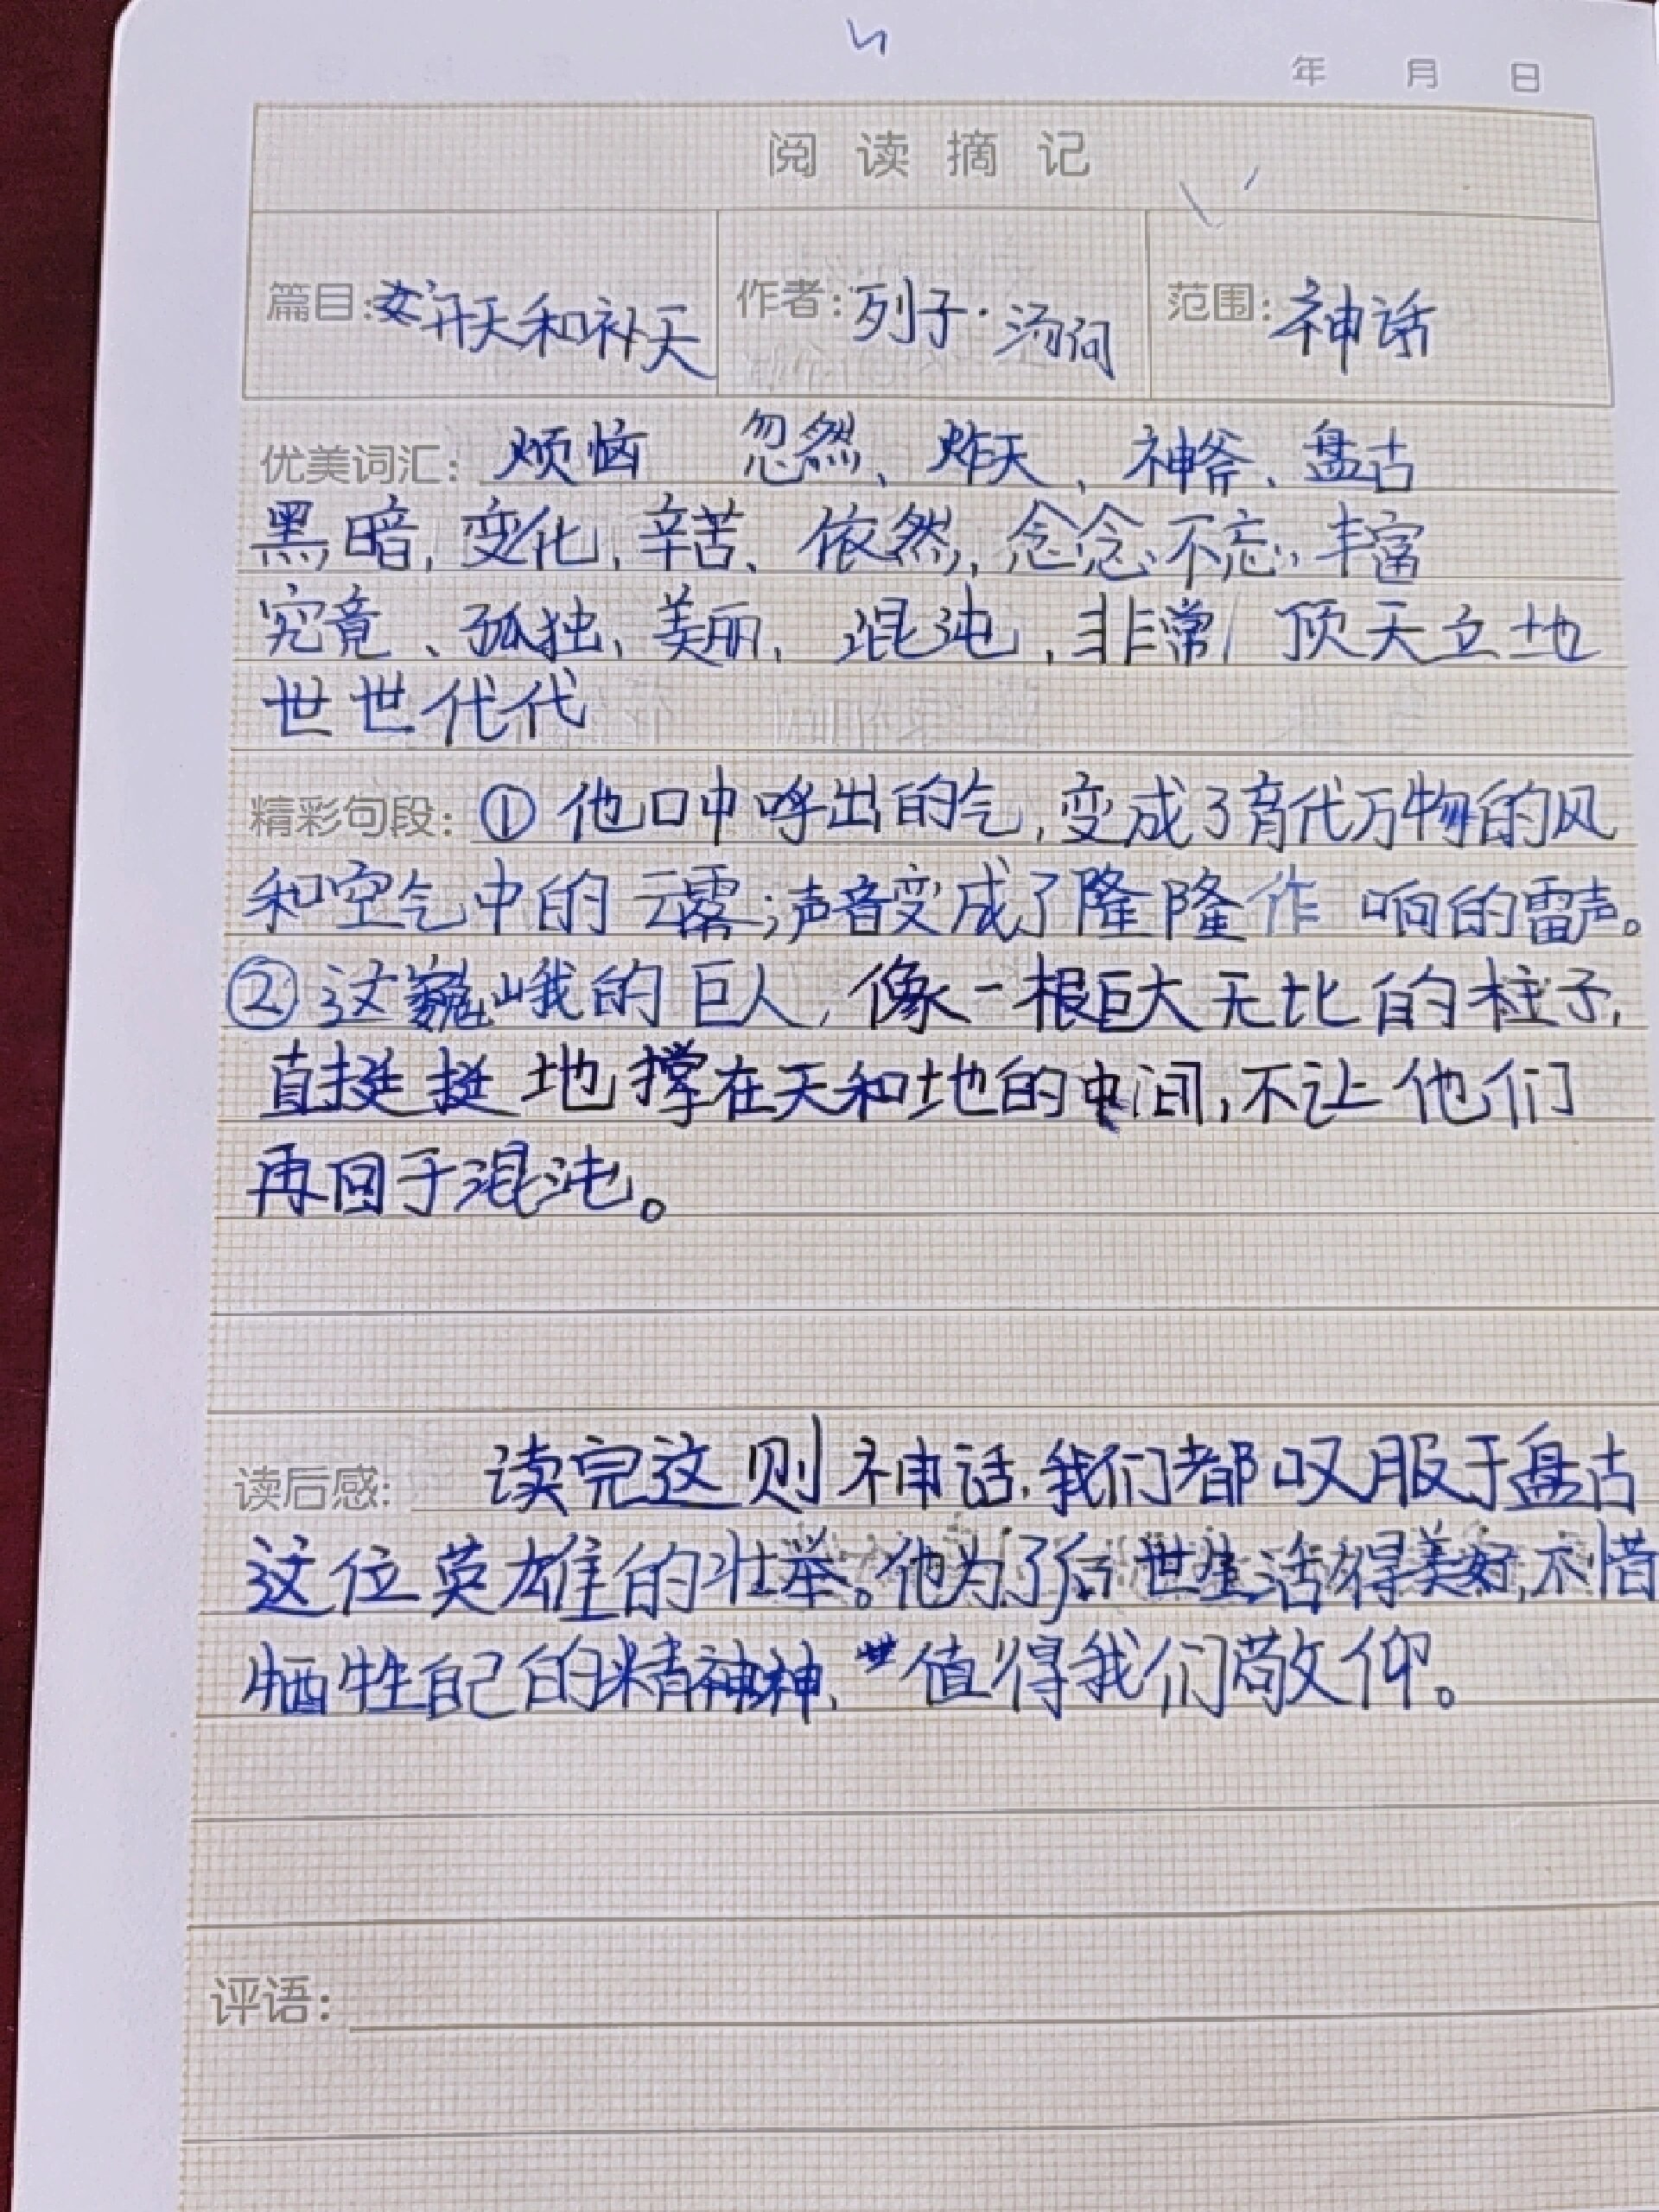 年 月 日
阅读摘记
篇目:开天和补天 作者:列子·汤问 范围:神话
优美词汇: 烦恼 忽然、炸天、神斧、盘古
黑暗,变化,辛苦、依然,念念不忘,丰富
究竟、孤独,美丽,混沌,非常/顶天立地
世世代代
精彩句段: ①他口中呼出的气,变成了育代万物的风
和空气中的云雾;声音变成了隆隆作响的雷声。
②这巍峨的巨人,像一根巨大无比的柱子,
直挺挺地撑在天和地的中间,不让他们
再回于混沌。
读后感: 读完这则神话,我们都叹服于盘古
这位英雄的壮举。他为了后世生活得美好,不惜
牺牲自己的精神,值得我们敬仰。
评语: